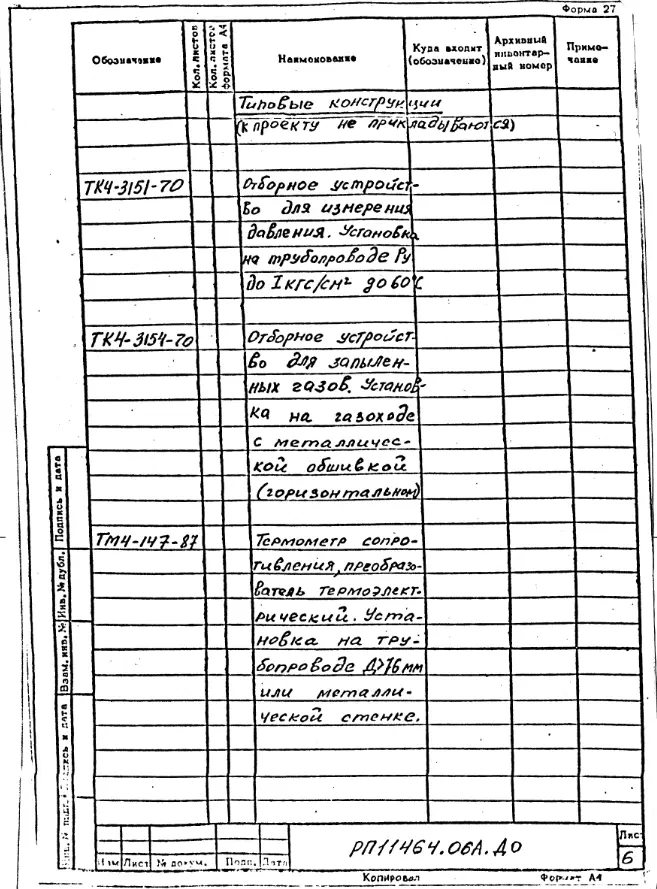 Форма 27
Обозначение
Кол. листов
Кол. листов формата А4
Наименование
Куда входит (обозначение)
Архивный инвентарный номер
Примечание
Типовые конструкции
(к проекту не прикладываются)
ТК4-3151-70
Отборное устройст-
во для измерения
давления. Установка
на трубопроводе Ру
до 1 кгс/см² до 60°С
ТК4-3154-70
Отборное устройст-
во для запылен-
ных газов. Установ-
ка на газоходе
с металличес-
кой обшивкой
(горизонтальном)
ТМ4-147-87
Термометр сопро-
тивления, преобразо-
ватель термоэлект-
рический. Уста-
новка на тру-
бопроводе Д>76мм
или металли-
ческой стенке.
Подпись и дата
Инв. № дубл.
Взам. инв. №
Подпись и дата
Инв. № подл.
Изм Лист № докум. Подп. Дата
РП11464.06А.ДО
Лист
6
Копировал
Формат А4